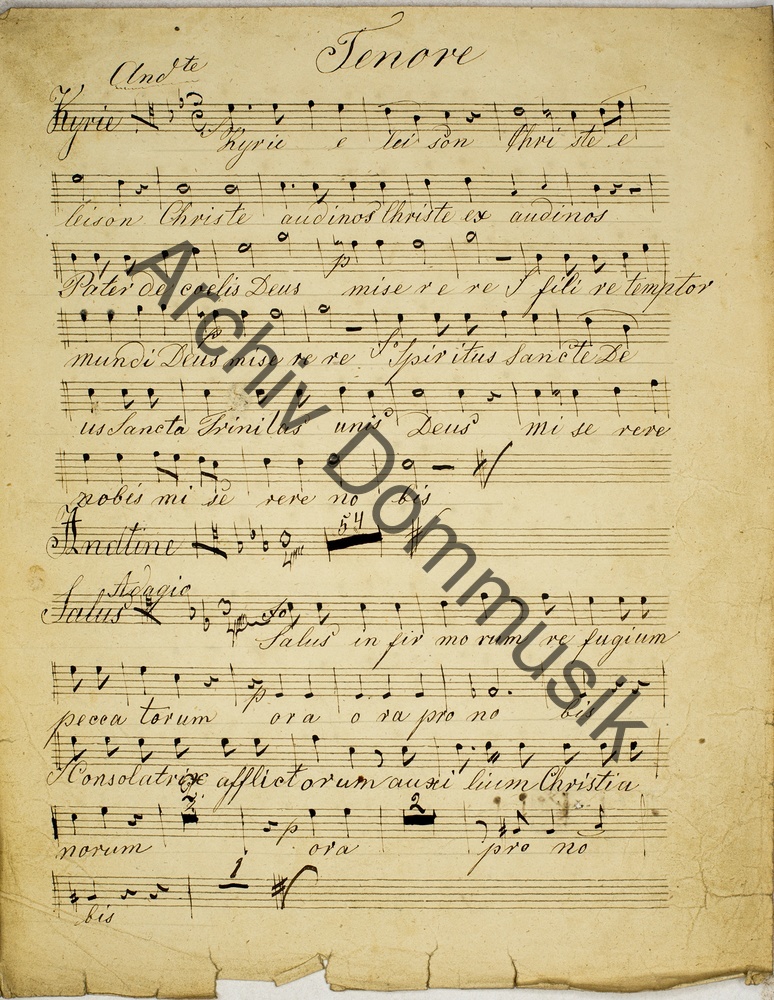 Tenore
And.te
Kyrie
Kyrie e lei son Chri ste e
leison Christe audinos Christe ex audinos
Pater de coelis Deus mise re re f fili re temptor
mundi Deus mise re re f Spiritus Sancte De
us Sancta Trinitas unis Deus mi se rere
nobis mi se rere no bis
Andtine 54
Adagio
Salus 3
Salus in fir mo rum re fugium
pecca torum p ora o ra pro no bis
f Consolatrix afflictorum auxi lium Christia
2 p 2
norum ora pro no
1
bis
Archiv Dommusik